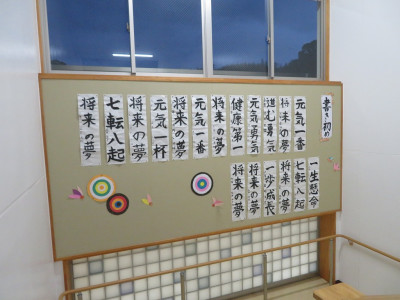 書き初め
元気一番
将来の夢
進む勇気
元気勇気
健康第一
将来の夢
元気一番
将来の夢
元気一杯
将来の夢
七転八起
将来の夢
一生懸命
七転八起
将来の夢
一歩成長
将来の夢
将来の夢